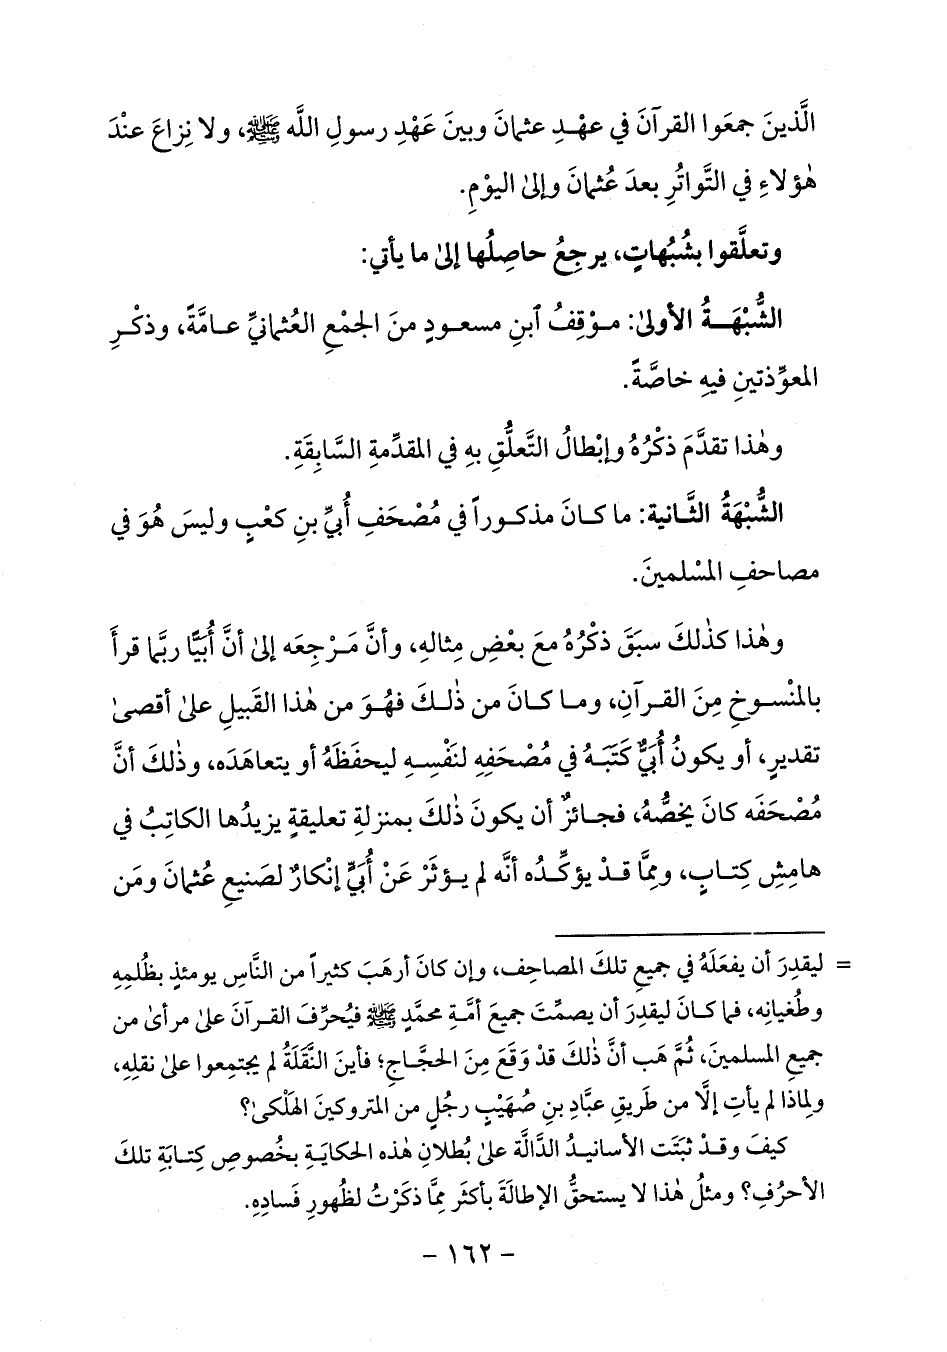 الَّذينَ جمعَوا القرآنَ في عهْدِ عثمانَ وبينَ عَهْدِ رسولِ اللَّه ﷺ، ولا نِزاعَ عنْدَ
هٰؤلاءِ في التَّواتُرِ بعدَ عُثمانَ وإلىٰ اليوْمِ.
وتعلَّقوا بشُبُهاتٍ، يرجِعُ حاصِلُها إلىٰ ما يأتي:
الشُّبْهَةُ الأولىٰ: موْقِفُ ٱبنِ مسعودٍ منَ الجمْعِ العُثمانيِّ عامَّةً، وذكْرِ
المعوِّذتينِ فيهِ خاصَّةً.
وهٰذا تقدَّمَ ذكْرُهُ وإبْطالُ التَّعلُّقِ بهِ في المقدِّمةِ السَّابِقَةِ.
الشُّبْهَةُ الثَّانية: ما كانَ مذكوراً في مُصْحَفِ أُبيِّ بنِ كعْبٍ وليسَ هُوَ في
مصاحفِ المسْلمينَ.
وهٰذا كذٰلكَ سبَقَ ذكْرُهُ معَ بعْضِ مِثالهِ، وأنَّ مَرْجِعَه إلىٰ أنَّ أُبَيًّا ربَّما قرأَ
بالمنْسوخِ مِنَ القرآنِ، وما كانَ من ذٰلكَ فهُوَ من هٰذا القَبيلِ علىٰ أقصىٰ
تقديرٍ، أو يكونُ أُبَيٌّ كَتَبَهُ في مُصْحَفِهِ لنَفْسِهِ ليحفَظَهُ أو يتعاهَدَه، وذٰلكَ أنَّ
مُصْحَفَه كانَ يخصُّهُ، فجائزٌ أن يكونَ ذٰلكَ بمنزلةِ تعليقةٍ يزيدُها الكاتِبُ في
هامِشِ كِتابٍ، وممَّا قدْ يؤكِّدُه أنَّه لم يؤثَرْ عَنْ أُبيٍّ إنْكارٌ لصَنيعِ عُثمانَ ومَن
= ليقدِرَ أن يفعَلَهُ في جميعِ تلكَ المصاحِف، وإن كانَ أرهَبَ كثيراً من النَّاسِ يومئذٍ بظُلمِهِ
وطُغيانِه، فما كانَ ليقدِرَ أن يصمِّتَ جميعَ أمَّةِ محمَّدٍ ﷺ فيُحرِّفَ القرآنَ علىٰ مرأىٰ من
جميعِ المسلمينَ، ثُمَّ هَب أنَّ ذٰلكَ قدْ وَقَعَ مِنَ الحجَّاجِ؛ فأينَ النَّقَلَةُ لم يجتمِعوا علىٰ نقلِهِ،
ولماذا لم يأتِ إلَّا من طَريقِ عبَّادِ بنِ صُهَيْبٍ رجُلٍ من المتروكينَ الهَلْكىٰ؟
كيفَ وقدْ ثبَتَت الأسانيدُ الدَّالَّة علىٰ بُطلانِ هٰذه الحكايَةِ بخُصوصِ كِتابَةِ تلكَ
الأحرُفِ؟ ومثلُ هٰذا لا يستحقُّ الإطالَةَ بأكثَرَ ممَّا ذكَرْتُ لظُهورِ فَسادِهِ.
- ١٦٢ -